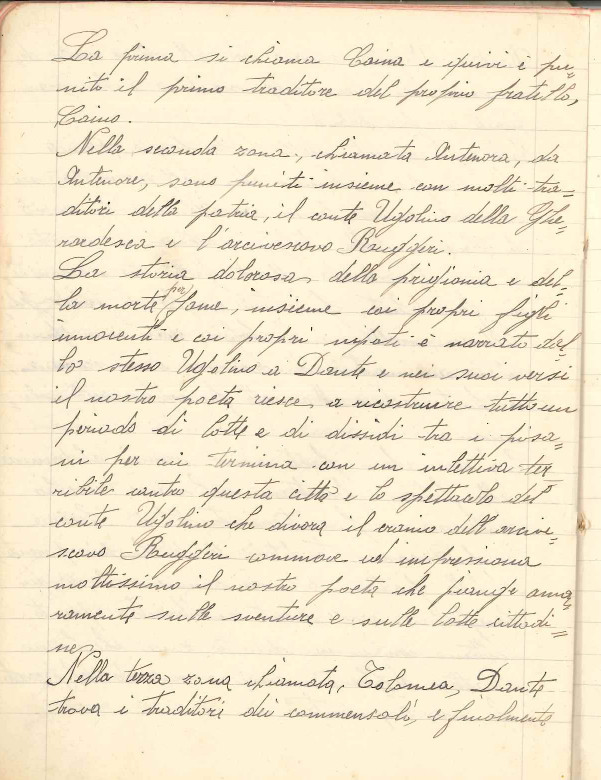 La prima si chiama Caina e quivi è pu=
nito il primo traditore del proprio fratello,
Caino.
Nella seconda zona, chiamata Antenora, da
Antenore, sono puniti insieme con molti tra=
ditori della patria, il conte Ugolino della Ghe=
rardesca e l'arcivescovo Ruggeri.
La storia dolorosa della prigionia e del=
la morte per fame, insieme coi propri figli
innocenti e coi propri nipoti è narrato dal=
lo stesso Ugolino a Dante e nei suoi versi
il nostro poeta riesce a ricostruire tutto un
periodo di lotte e di dissidi tra i pisa=
ni per cui termina con un inlettiva ter=
ribile contro questa città e lo spettacolo del
conte Ugolino che divora il cranio dell'arcive=
scovo Ruggeri commove ed impressiona
moltissimo il nostro poeta che piange ama=
ramente sulle sventure e sulle lotte cittadi=
ne.
Nella terza zona chiamata, Tolomea, Dante
trova i traditori dei commensali, e finalmente